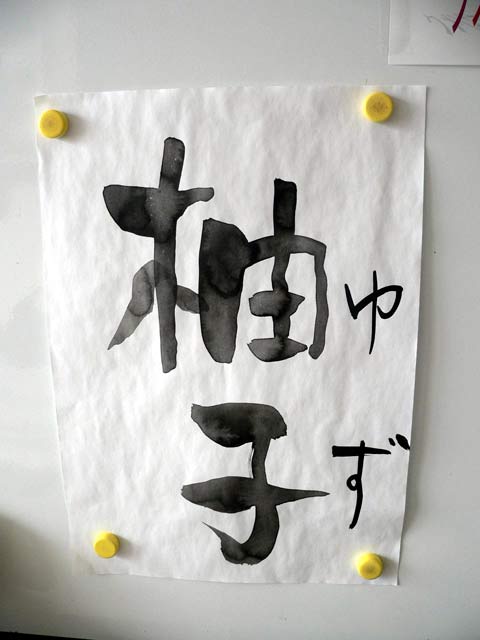 柚子
ゆず